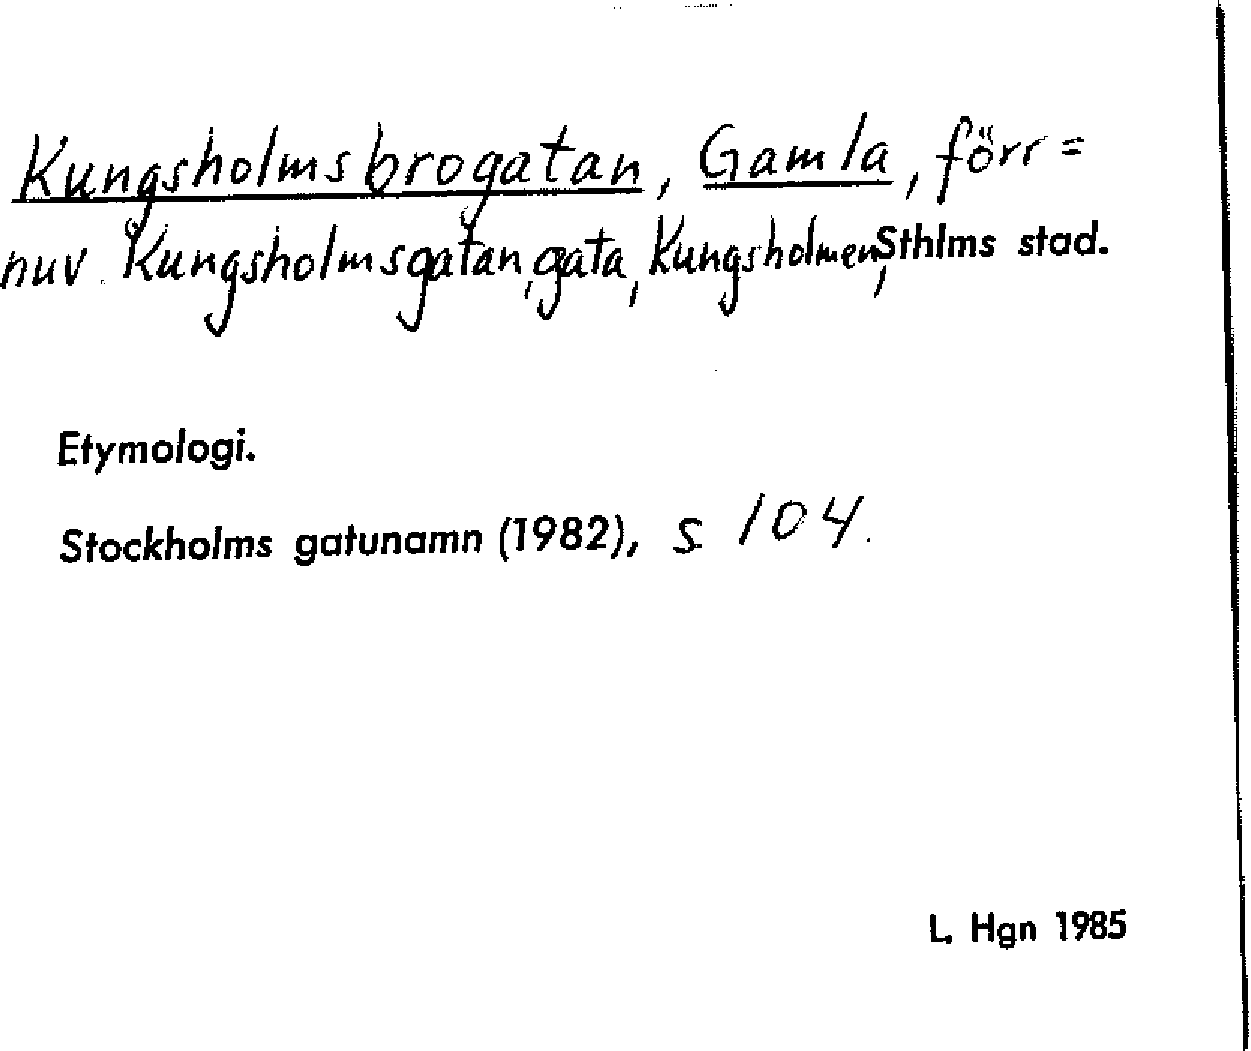 Kungsholmsbrogatan, Gamla, förr =
nuv. Kungsholmsgatan, gata, Kungsholmen, Sthlms stad.
Etymologi.
Stockholms gatunamn (1982), s 104.
L. Hgn 1985